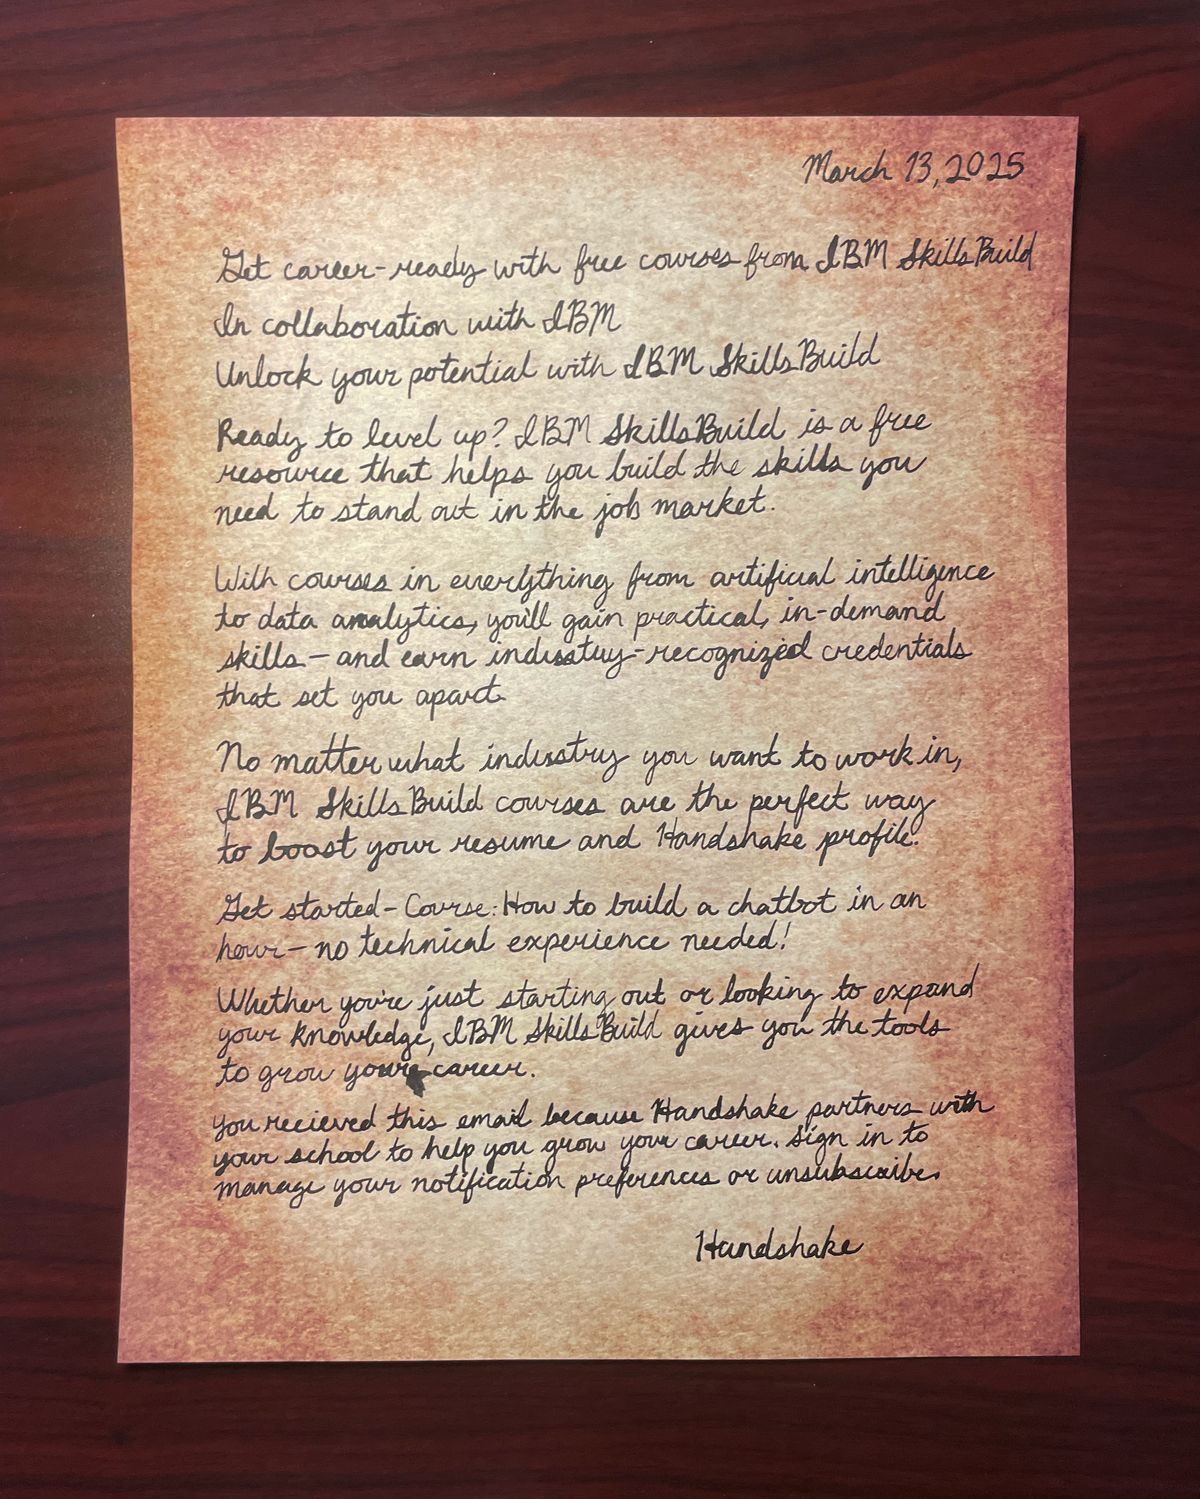 March 13, 2025
Get career-ready with free courses from IBM SkillsBuild
In collaboration with IBM
Unlock your potential with IBM SkillsBuild
Ready to level up? IBM SkillsBuild is a free
resource that helps you build the skills you
need to stand out in the job market.
With courses in everything from artificial intelligence
to data analytics, you'll gain practical, in-demand
skills — and earn industry-recognized credentials
that set you apart.
No matter what industry you want to work in,
IBM SkillsBuild courses are the perfect way
to boost your resume and Handshake profile.
Get started - Course: How to build a chatbot in an
hour — no technical experience needed!
Whether you're just starting out or looking to expand
your knowledge, IBM SkillsBuild gives you the tools
to grow your career.
You recieved this email because Handshake partners with
your school to help you grow your career. Sign in to
manage your notification preferences or unsubscribe.
Handshake